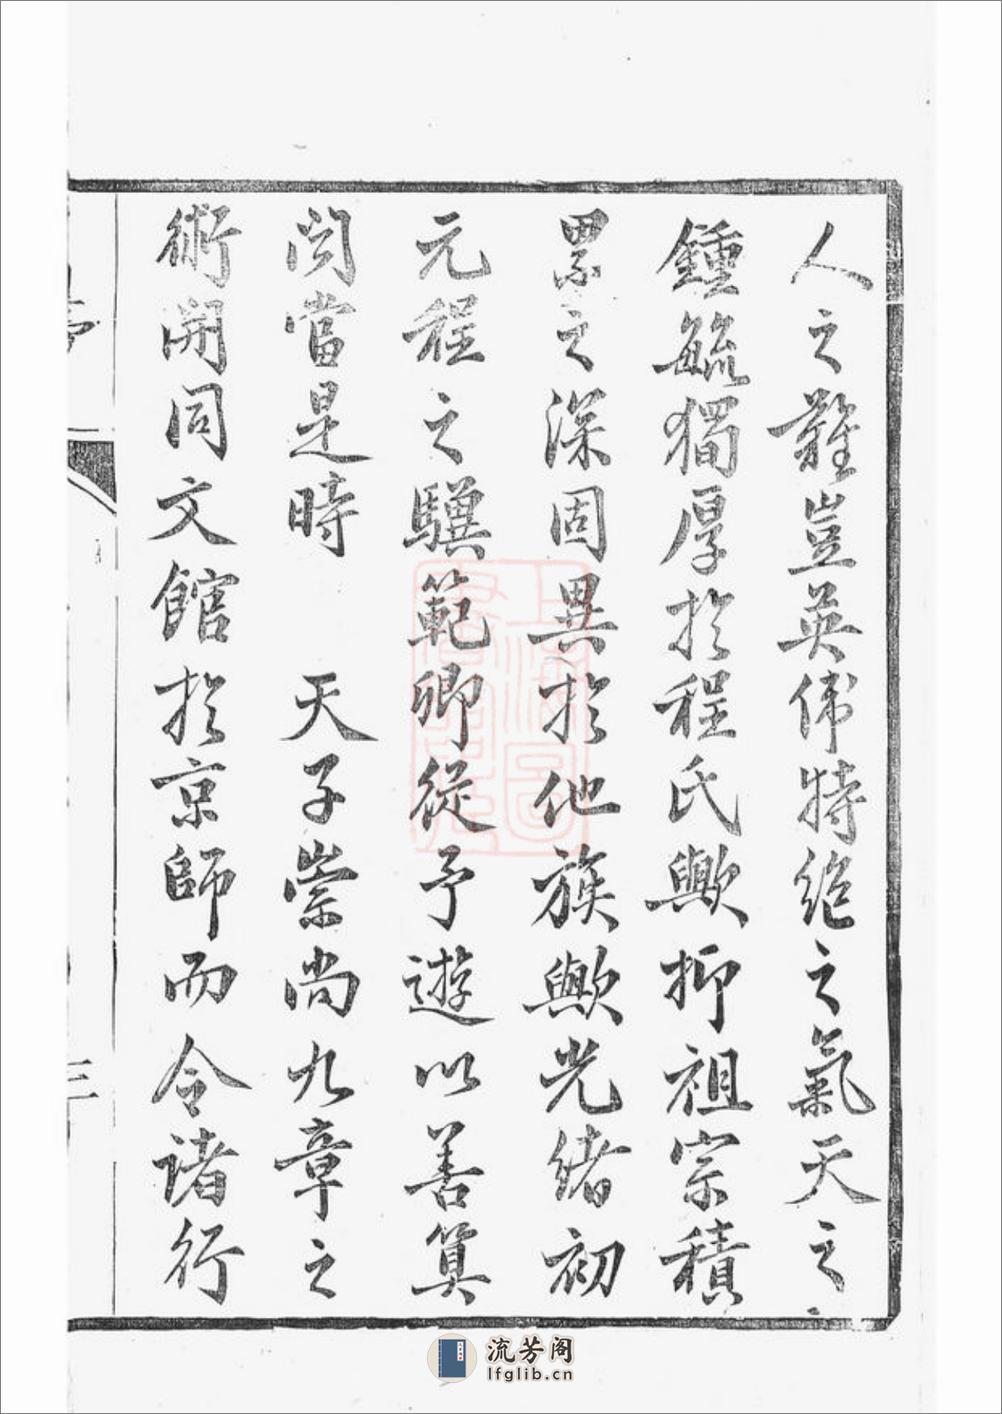 人之難豈英偉特絕之氣天之
鍾毓獨厚於程氏歟抑祖宗積
累之深固異於他族歟光緒初
元程之驥範卿從予遊以善算
聞當是時　天子崇尚九章之
術開同文館於京師而令諸行
三
上海圖書館藏
流芳阁
lfglib.cn